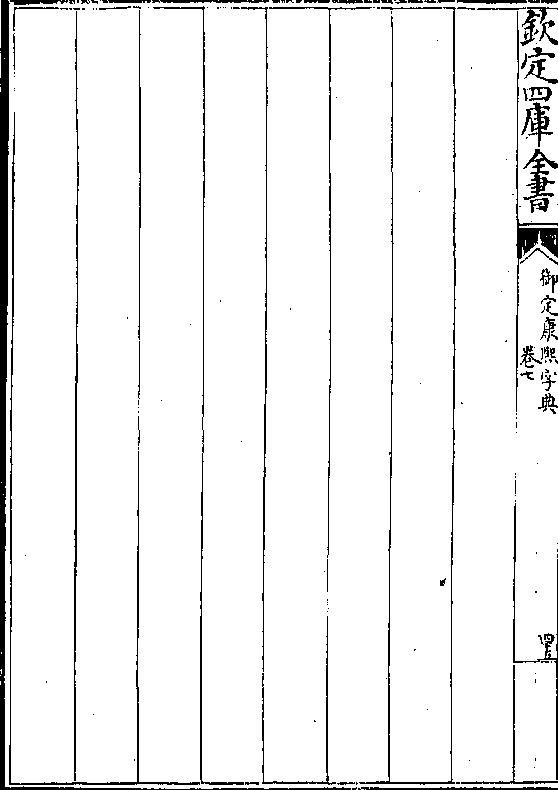 欽定四庫全書
御定康熙字典
卷七